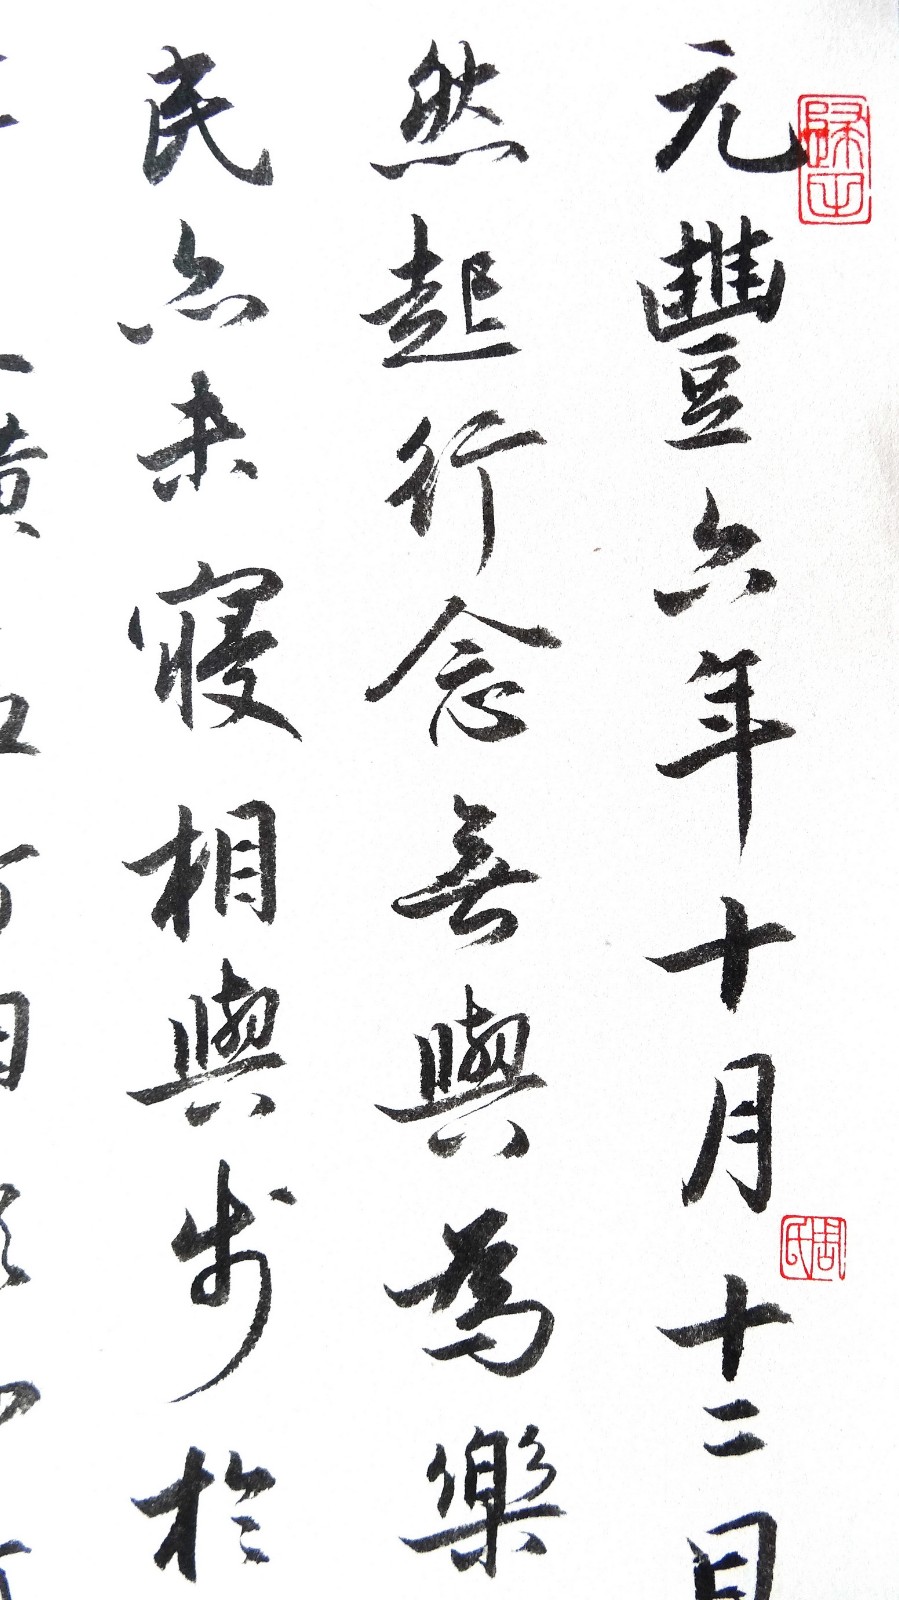 元豐六年十月十二日
然起行念無與為樂
民亦未寢相與步於
周氏